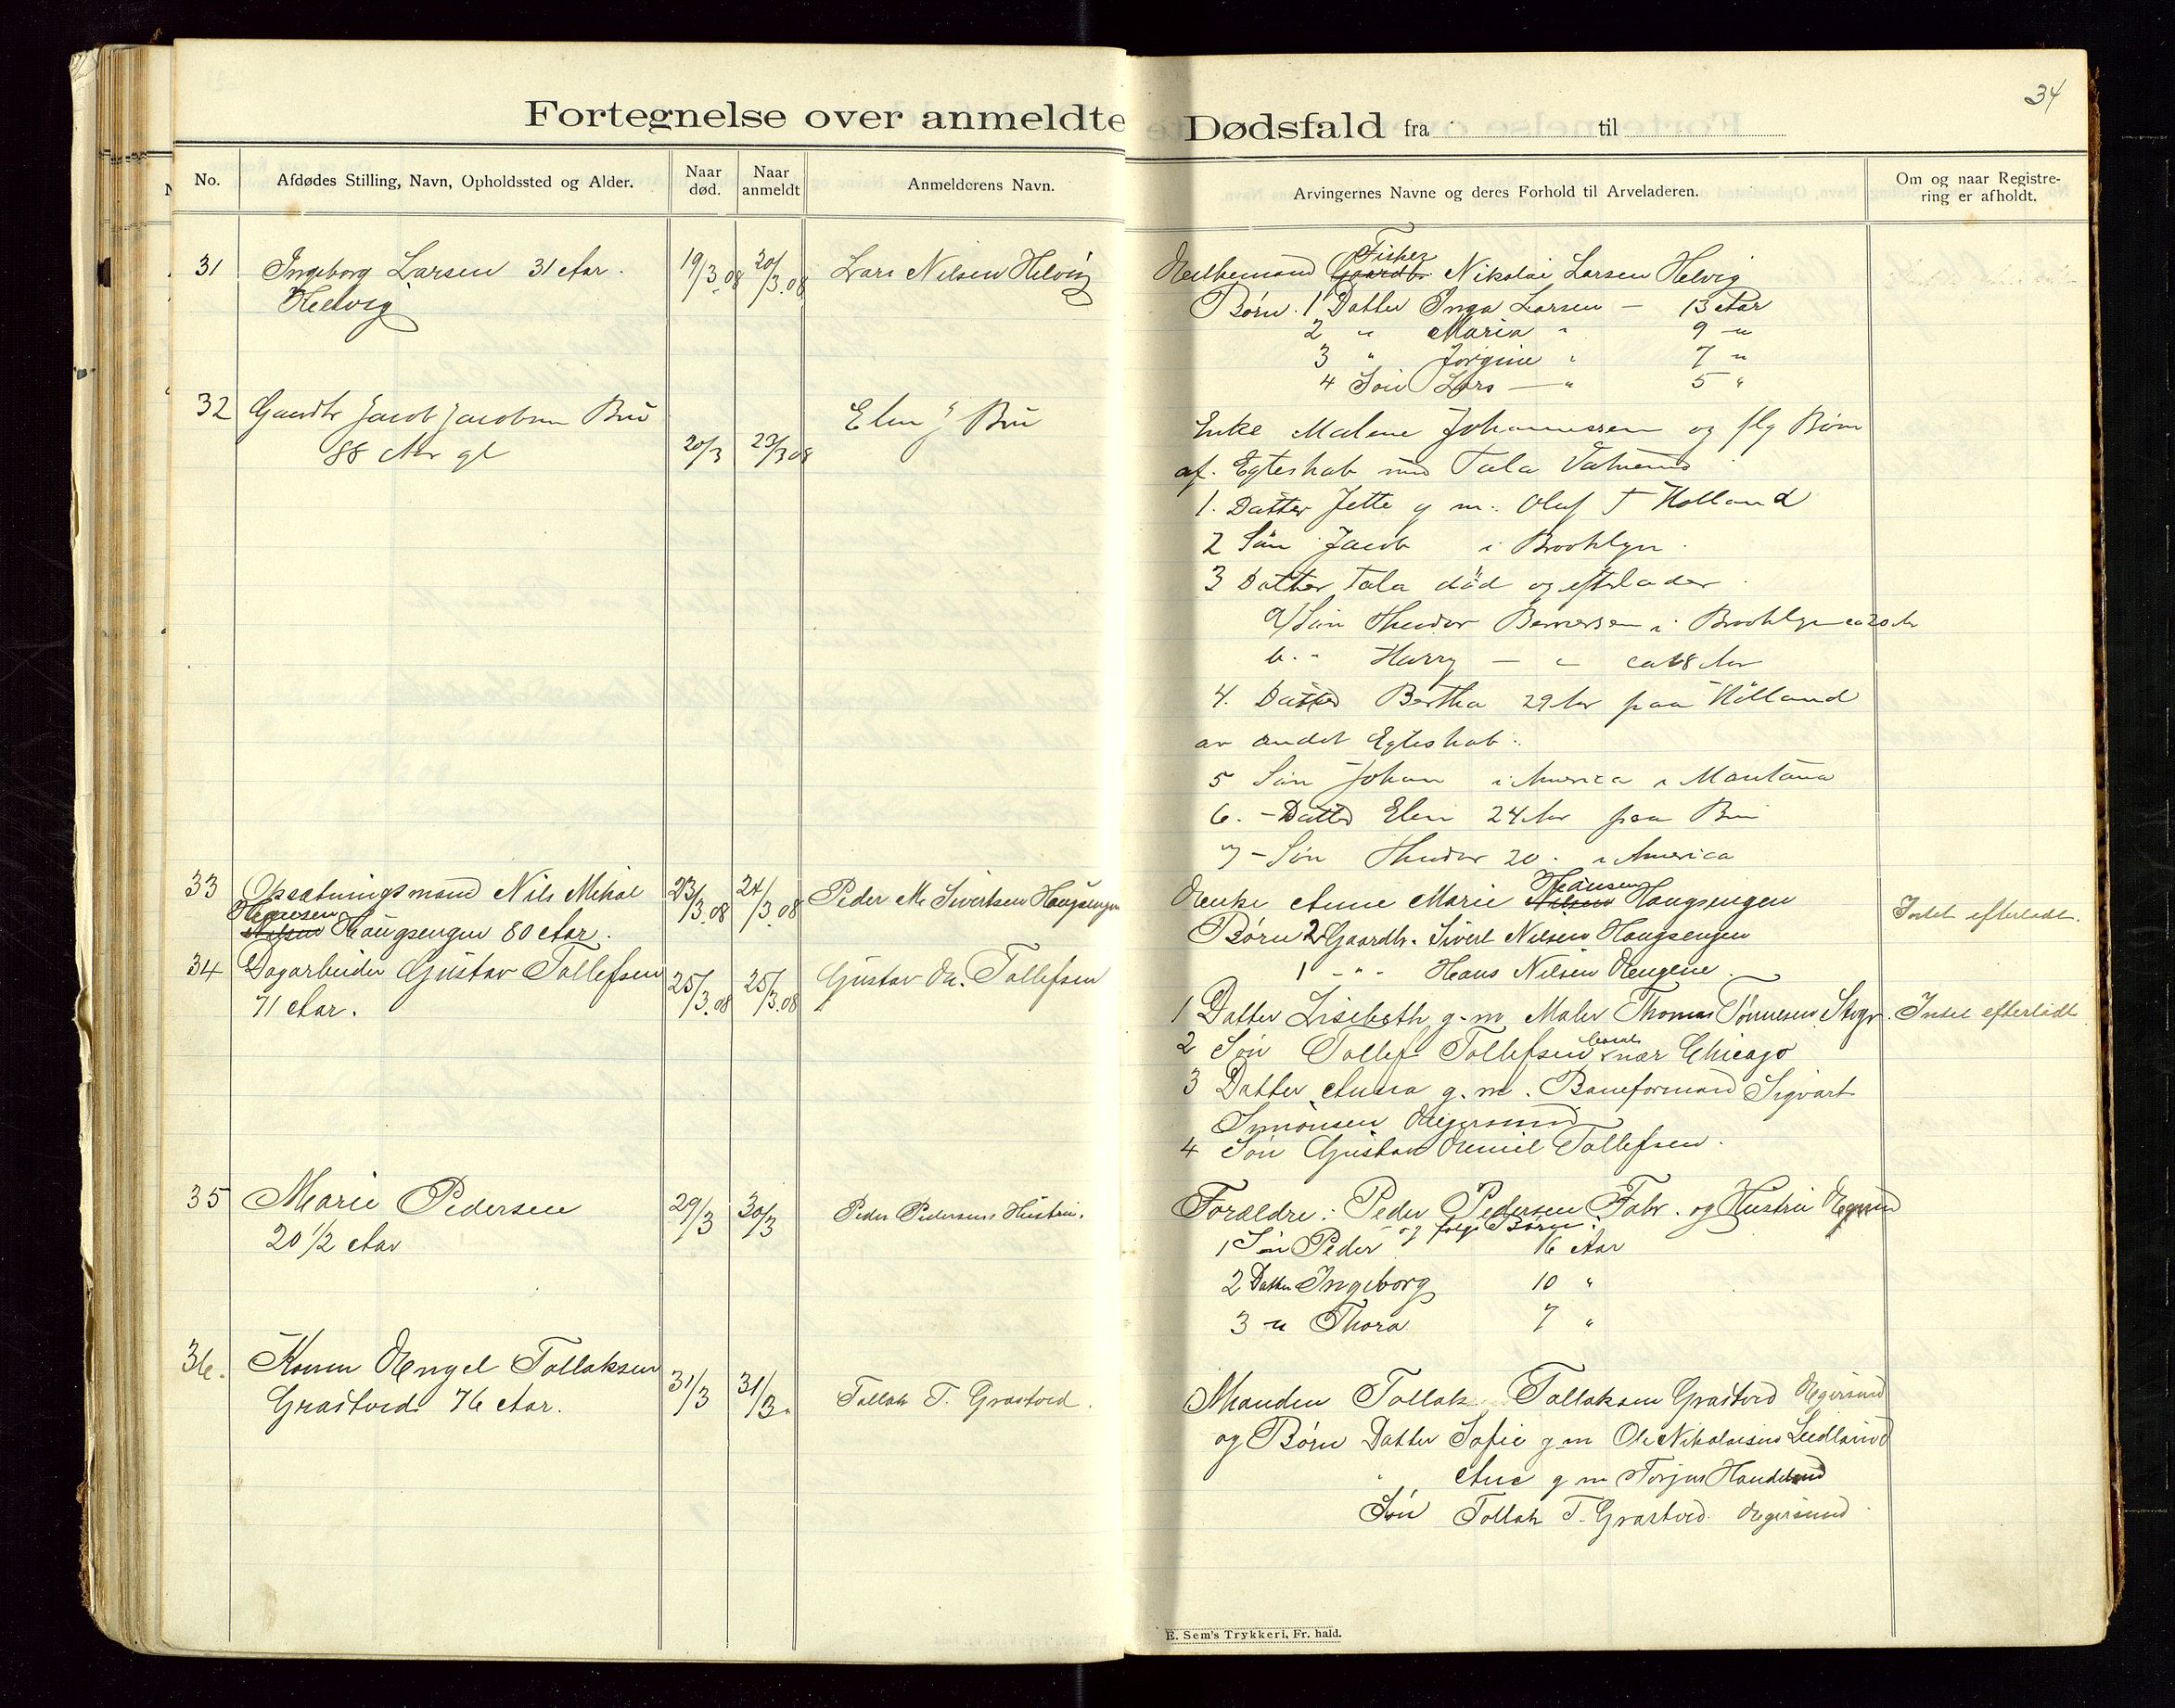 34
Fortegnelse over anmeldte Dødsfald fra til
No.
Afdødes Stilling, Navn, Opholdssted og Alder.
Naar død.
Naar anmeldt
Anmelderens Navn.
Arvingernes Navne og deres Forhold til Arveladeren.
Om og naar Registrering er afholdt.
31 Ingeborg Larsen 31 Aar. 19/3.08 20/3.08 Lars Nilsen Helvig
Helvig
Fisker
Gaardbr. Nikolai Larsen Helvig
Børn. 1 Datter Inga Larsen – 13 Aar
2 " Maria " 9 "
3 " Jorgine " 7 "
4 Søn Lars — " 5 "
32 Gaardbr Jacob Jacobsen Bru
88 Aar gl 20/3 23/3 08 Elen J Bru
Enke Malene Johannessen og flg Børn
af. Egteskab med Tala
1. Datter Jette g m. Oluf T Hølland
2 Søn Jacob i Brooklyn.
3 Datter Tala død og efterlader
a/ Søn Theodor i Brooklyn ca 20 Ar
b. " Harry — " ca 18 Aar
4. Datter Bertha 29 Aar paa Hølland
av andet Egteskab:
5 Søn Johan i America i Montana
6. – Datter Elen 24 Aar paa Bru
7 – Søn Theodor 20 . i America
33 Opsætningsmand Nils Mikal 23/3.08 24/3.08 Peder M Sivertsen Haugsengen
Hansen
Nilsen Haugsengen 80 Aar.
Hansen
Enke Anne Marie Nilsen Haugsengen
Børn 2 Gaardbr. Sivert Nilsen Haugsengen
1 – " – Hans Nilsen
Intet efterladt.
34 Dagarbeider Gustav Tollefsen 25/3.08 25/3.08 Gustav Em. Tollefsen
71 Aar.
1 Datter Lisebeth g.m Maler Thomas Tønnesen Stvgr. Intet efterladt
2 Søn Tollef Tollefsen nær Chicago
3 Datter Anna g.m. Baneformand Sigvart
Simonsen Egersund
4 Søn Gustav Emil Tollefsen.
35 Marie Pedersen 29/3 30/3 Peder Pedersens Hustru.
20 1/2 Aar
Forældre: Peder Pedersen Fabr. og Hustru Egersund
og følg. Børn:
1 Søn Peder 16 Aar
2 Datter Ingeborg 10 "
3 " Thora 7 "
36. Konen Engel Tollaksen 31/3 31/3. Tollak T. Grastved.
Grastved. 76 Aar.
Manden Tollak Tollaksen Grastved Egersund
og Børn Datter Sofie g m Ole Nikolaisen Leidland
" Ane g m Torjus Handeland
Søn Tollak T. Grastved. Egersund.
E. Sem's Trykkeri, Fr. hald.